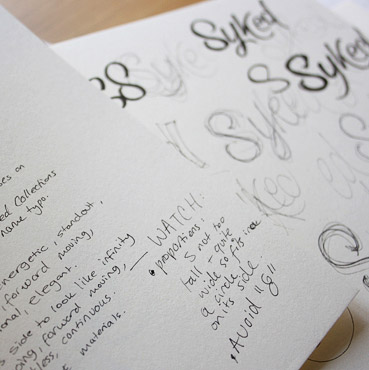 Syked
Syke
S
Syked
S
Syke
S
Kee
ed
es on
ed Collections
name typo.
energetic, standout,
forward moving,
onal, elegant.
s side to look like infinity
oing, forward moving,
less, continuous.
materials.
— WATCH:
• proportions!
S not too
tall - quite
wide so fits in
a circle
on its side.
• Avoid "8"